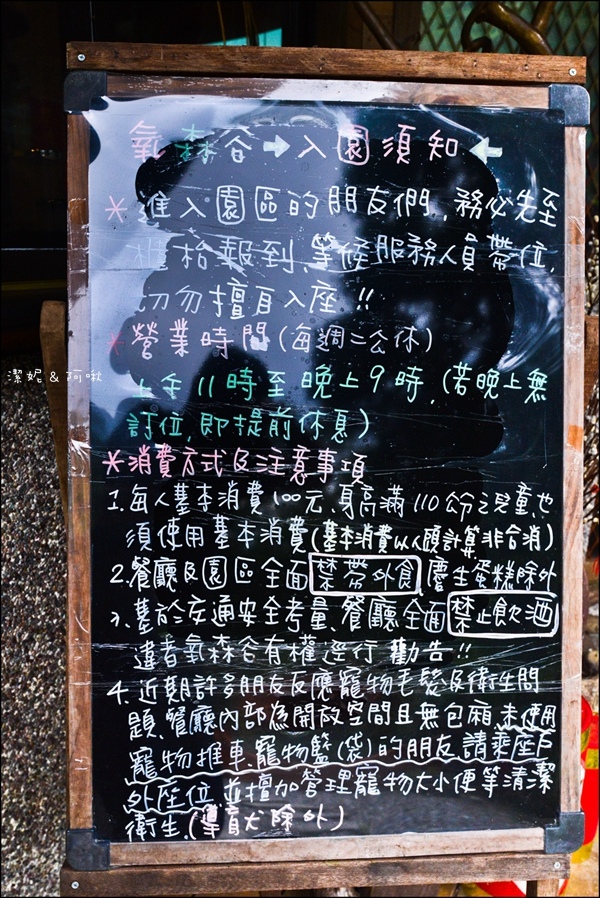 氧森谷→入園須知←
*進入園區的朋友們,務必先至
櫃枱報到,等候服務人員帶位,
切勿擅自入座!!
*營業時間(每週二公休)
上午11時至晚上9時,(若晚上無
訂位,即提前休息)
*消費方式及注意事項
1.每人基本消費100元,身高滿110公分之兒童,也
須使用基本消費(基本消費以人頭計算,非合消)
2.餐廳及園區全面禁帶外食,慶生蛋糕除外
3.基於交通安全考量,餐廳全面禁止飲酒
違者氧森谷有權逕行勸告!!
4.近期許多朋友反應寵物毛髮及衛生問
題,餐廳內部為開放空間且無包廂,未使用
寵物推車,寵物籃(袋)的朋友,請乘座戶
外座位,並增加管理寵物大小便等清潔
衛生,(導盲犬除外)
潔妮&阿啾